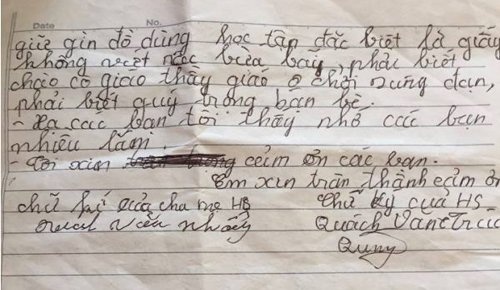 Date No.
giữ gìn đồ dùng học tập đặc biệt là giấy
không viết bậy bừa bãy, phải biết
chào cô giáo thầy giáo chơi dụng đan,
phải biết quý trọng bạn bè.
- Xa các bạn tôi thấy nhớ các bạn
nhiều lắm.
- Tôi xin cảm ơn các bạn.
Em xin trân thành cảm ơn
chữ kí của cha mẹ HS
Chữ ký của HS
Quách Văn
Quny